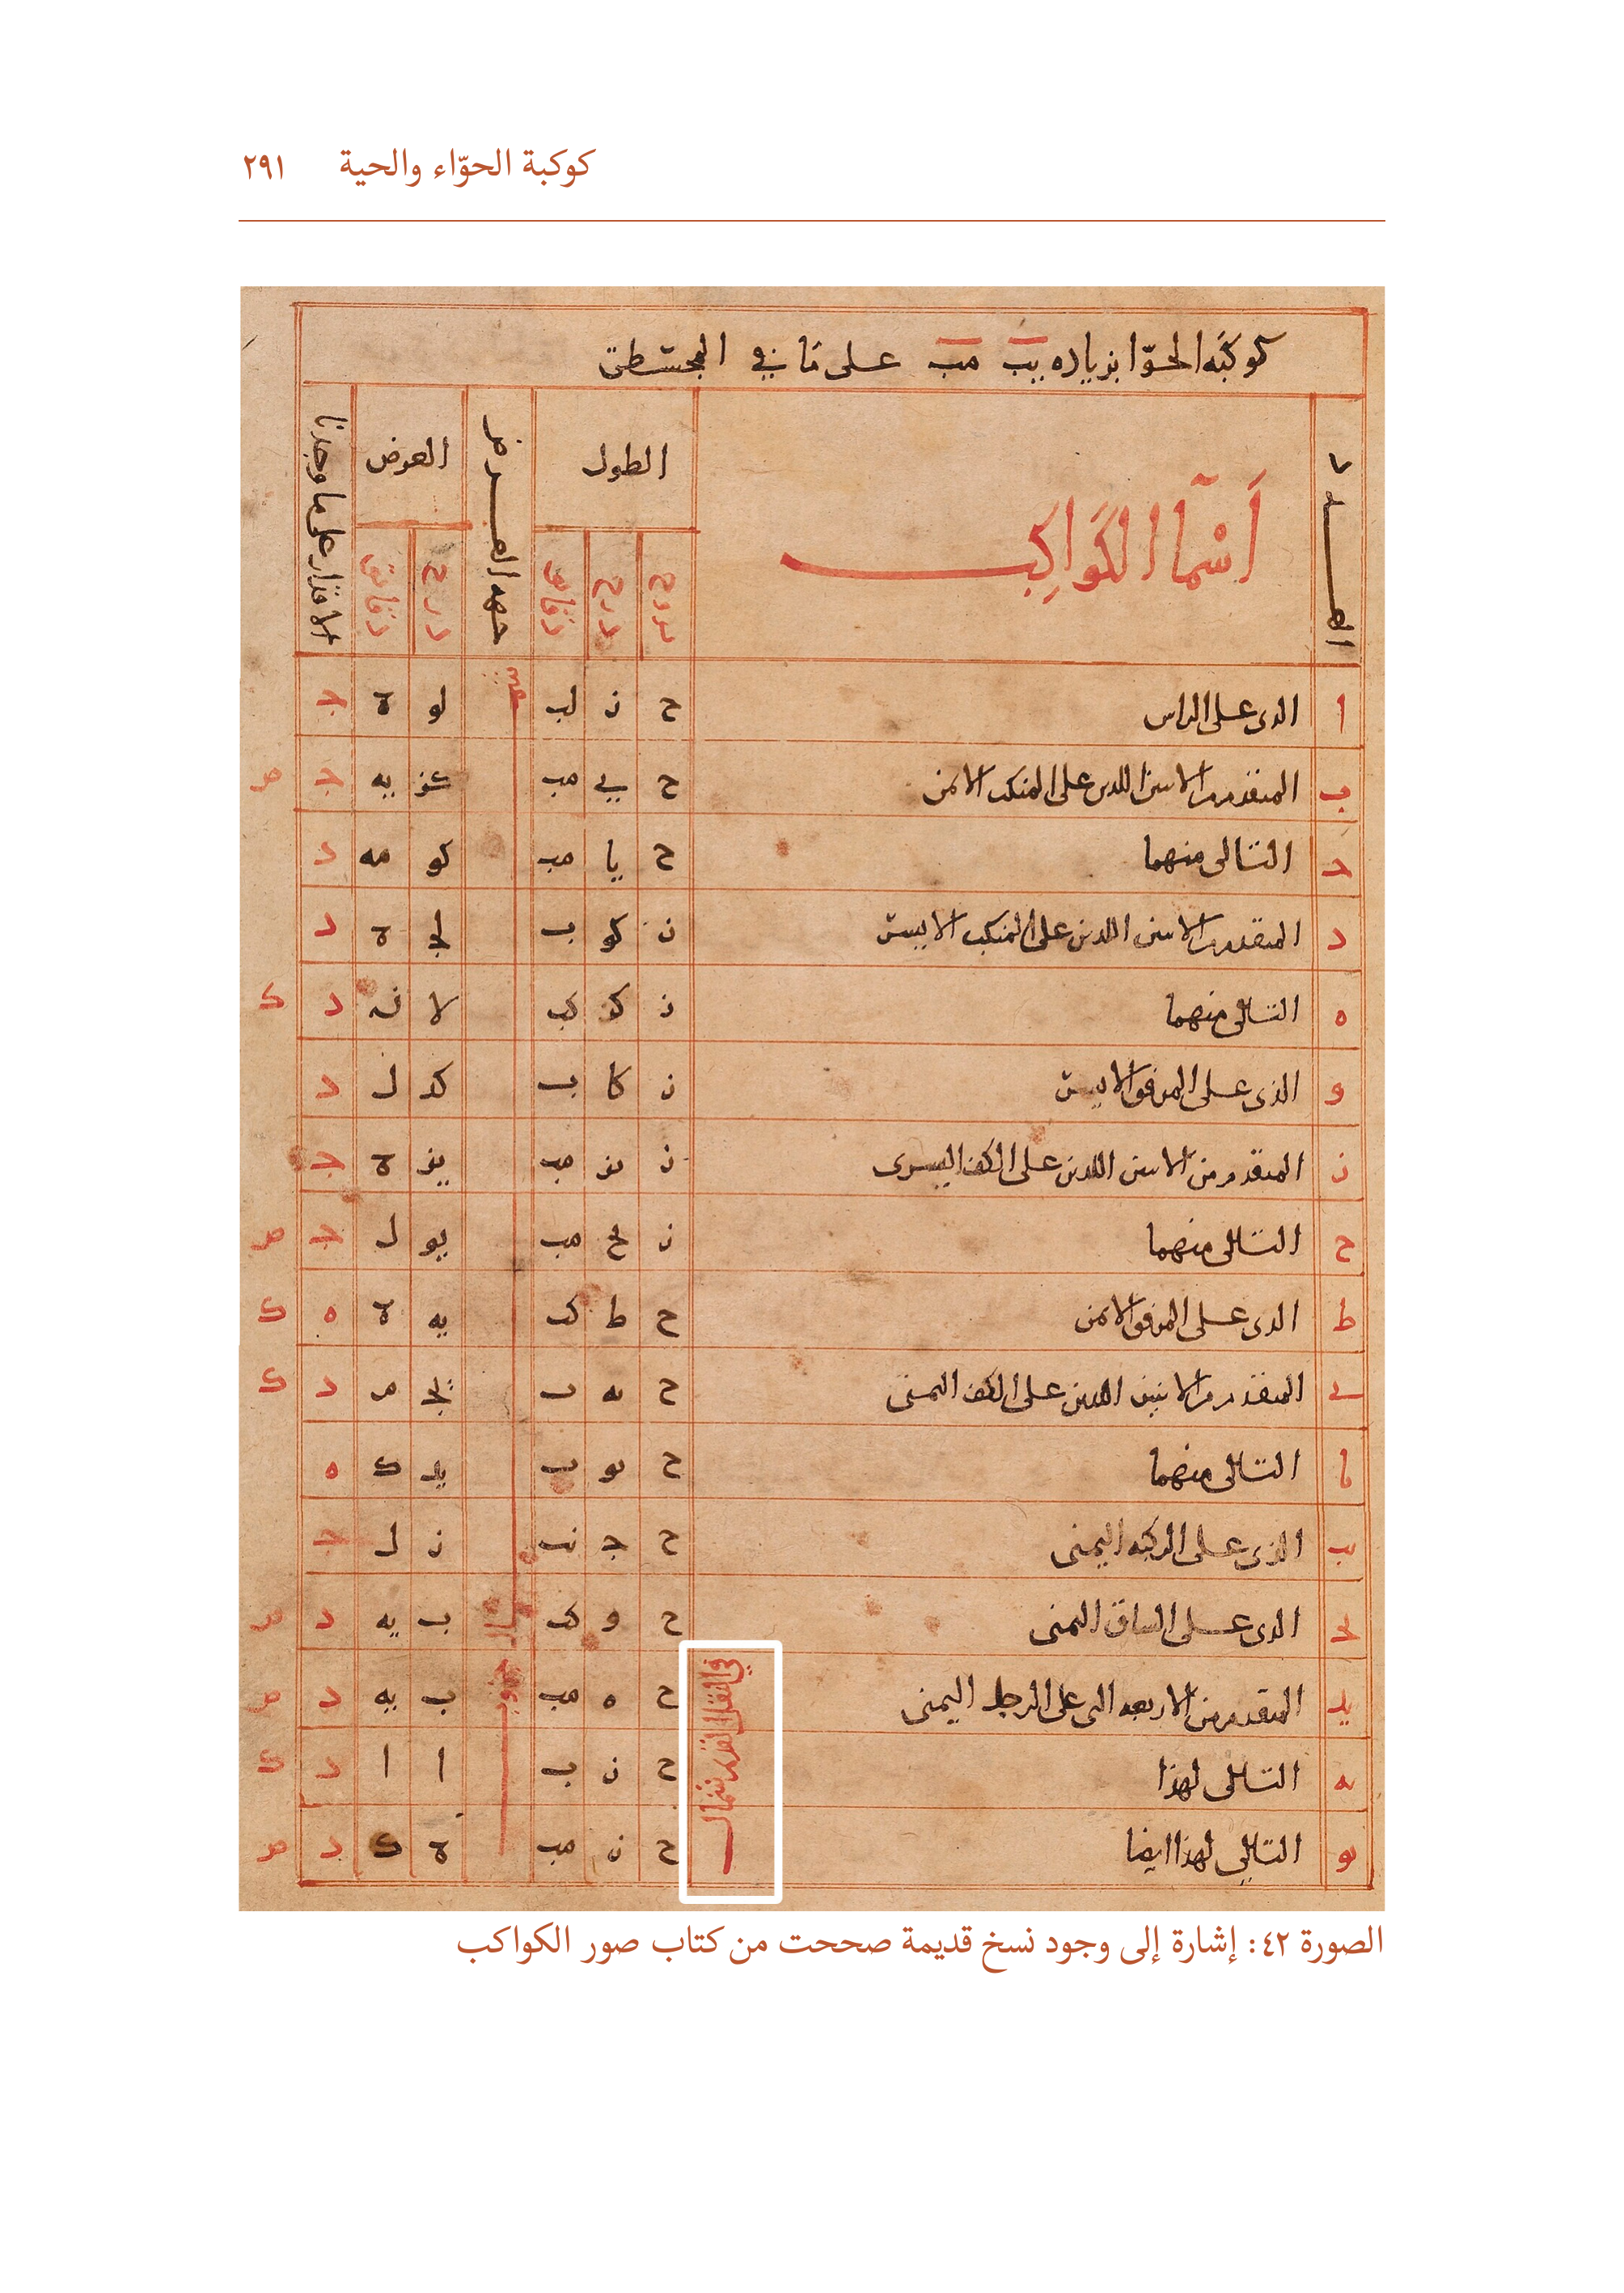 كوكبة الحوّاء والحية ٢٩١
كوكبه الحوّا بزياده يب مب على ما في المجسطى
العدد
اسما الكواكب
الطول
بروج درج دقائق
جهه العرض
العرض
درج دقائق
الاقدار على ما وجدنا
ا الدى على الراس ح ز لب لو ة ج
ب المتقدم من الاسين اللدين على المنكب الايمن ح ي مب كز يه ج ص
ج التالى منهما ح يا مب كو مه د
د المتقدم من الاسين اللدين على المنكب الايسر ز كو ب لج ة د
ه التالى منهما ز كز كب لا نه د ك
و الذى على المرفق الايسر ز كا ب كد ل د
ز المتقدم من الاسين اللدين على الكف اليسرى ز يز مب يز ة ج
ح التالى منهما ز يح مب يو ل ج ص
ط الدى على المرفق الايمن ح ط كب يه ة ه ك
ى المتقدم من الاثنين اللدين على الكف اليمنى ح يه ب يج م د ك
يا التالى منهما ح يو ب يد ك ه
يب الذى على الركبه اليمنى ح ج نب ز ل ج
يج الدى على الساق اليمنى ح و كب ب يه د ص
يد المتقدم من الاربعه التى على الرجل اليمنى ح ه مب ب يه د ص
يه التالى لهذا ح ز ب ا ا د ك
يو التالى لهذا ايضا ح ز مب ة ك د ص
شمال
جنوب
في النقل القديم شمال
الصورة ٤٢: إشارة إلى وجود نسخ قديمة صححت من كتاب صور الكواكب